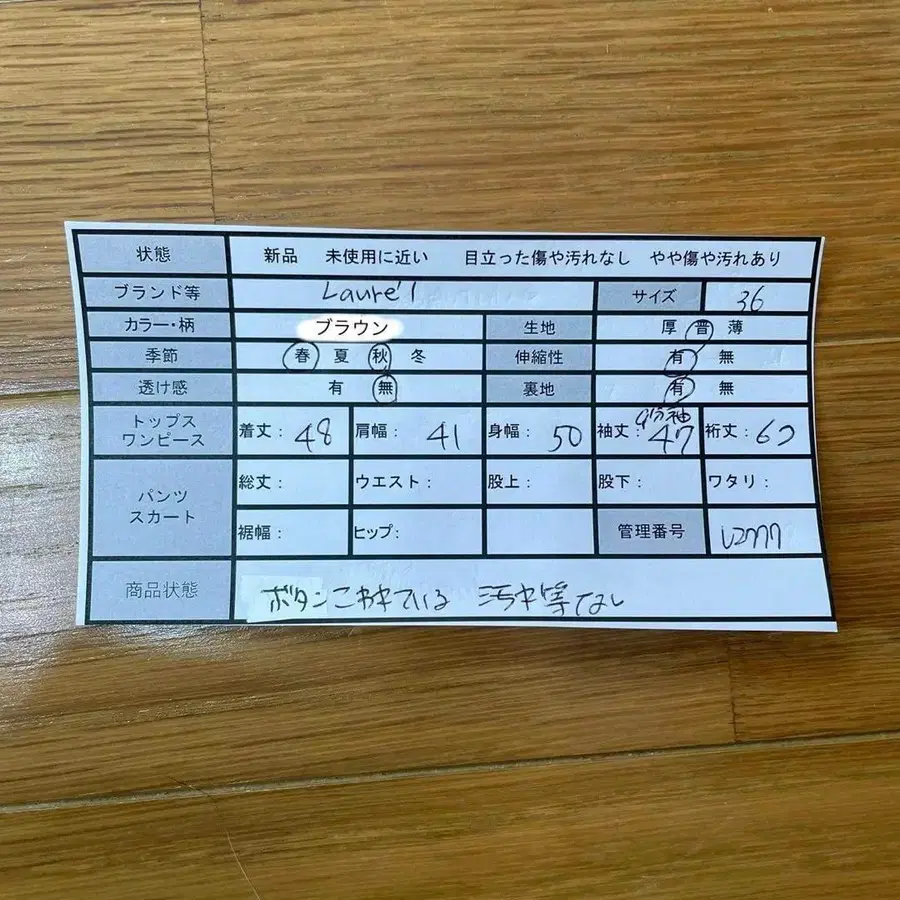 状態 新品 未使用に近い 目立った傷や汚れなし やや傷や汚れあり
ブランド等 Laure'l サイズ 36
カラー・柄 ブラウン 生地 厚 普 薄
季節 春 夏 秋 冬 伸縮性 有 無
透け感 有 無 裏地 有 無
トップス
ワンピース
着丈: 48 肩幅: 41 身幅: 50 袖丈: 9分袖 47 裄丈:
パンツ
スカート
総丈: ウエスト: 股上: 股下: ワタリ:
裾幅: ヒップ: 管理番号
商品状態 ボタンこわれている 汚れ等なし